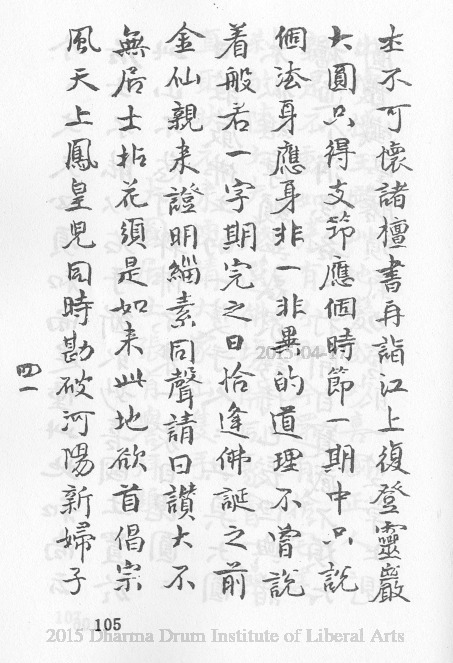 本不可懷諸檀書再詣江上復登靈巖
大圓只得支節應個時節一期中只說
個法身應身非一非異的道理不嘗說
着般若一字期完之日恰逢佛誕之前
金仙親來證明緇素同聲請曰讚大不
無居士拈花須是如來此地欲首倡宗
風天上鳳皇兒同時勘破河陽新婦子
四一
2015-04-17
105
2015 Dharma Drum Institute of Liberal Arts